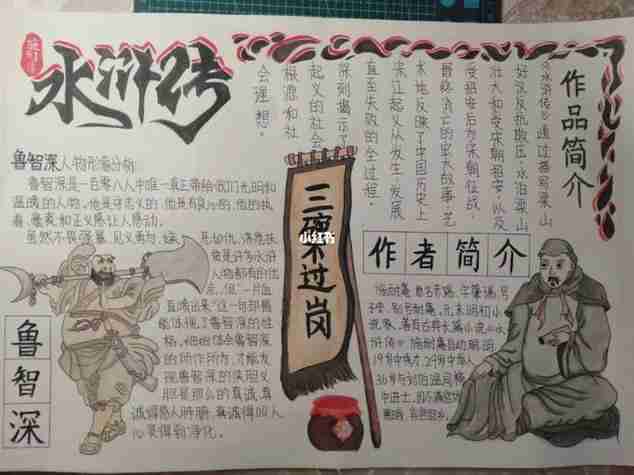 水浒传
作品简介
《水浒传》通过描写梁山
好汉反抗欺压、水泊梁山
壮大和受宋朝招安,以及
受招安后为宋朝征战,
最终消亡的宏大故事,艺
术地反映了中国历史上
宋江起义从发生、发展
直至失败的全过程,
深刻揭示了
起义的社会
根源和社
会理想。
鲁智深人物形象分析:
鲁智深是一百零八人中唯一真正带给我们光明和
温暖的人物。他是守志义的,他是有良心的,他的执
着、豪爽和正义感让人感动。
虽然不畏强暴、见义勇为、嫉恶如仇、济危扶
人物都有的优
点,但“一片血
直喷出来”这一句却最
能体现了鲁智深的性
格,细细体会鲁智深
的所作所为,才能发
现鲁智深的侠胆义
胆是那么的真诚,真
诚得感人肺腑,真诚得叫人
心灵得到净化。
鲁智深
三碗不过岗
小红书
作者简介
施耐庵,原名彦端,字肇瑞,号
子安,别号耐庵。元末明初小
说家,著有古典长篇小说《水
浒传》。施耐庵自幼聪明,
19岁中秀才,29岁中举人,
36岁与刘伯温同榜
中进士。